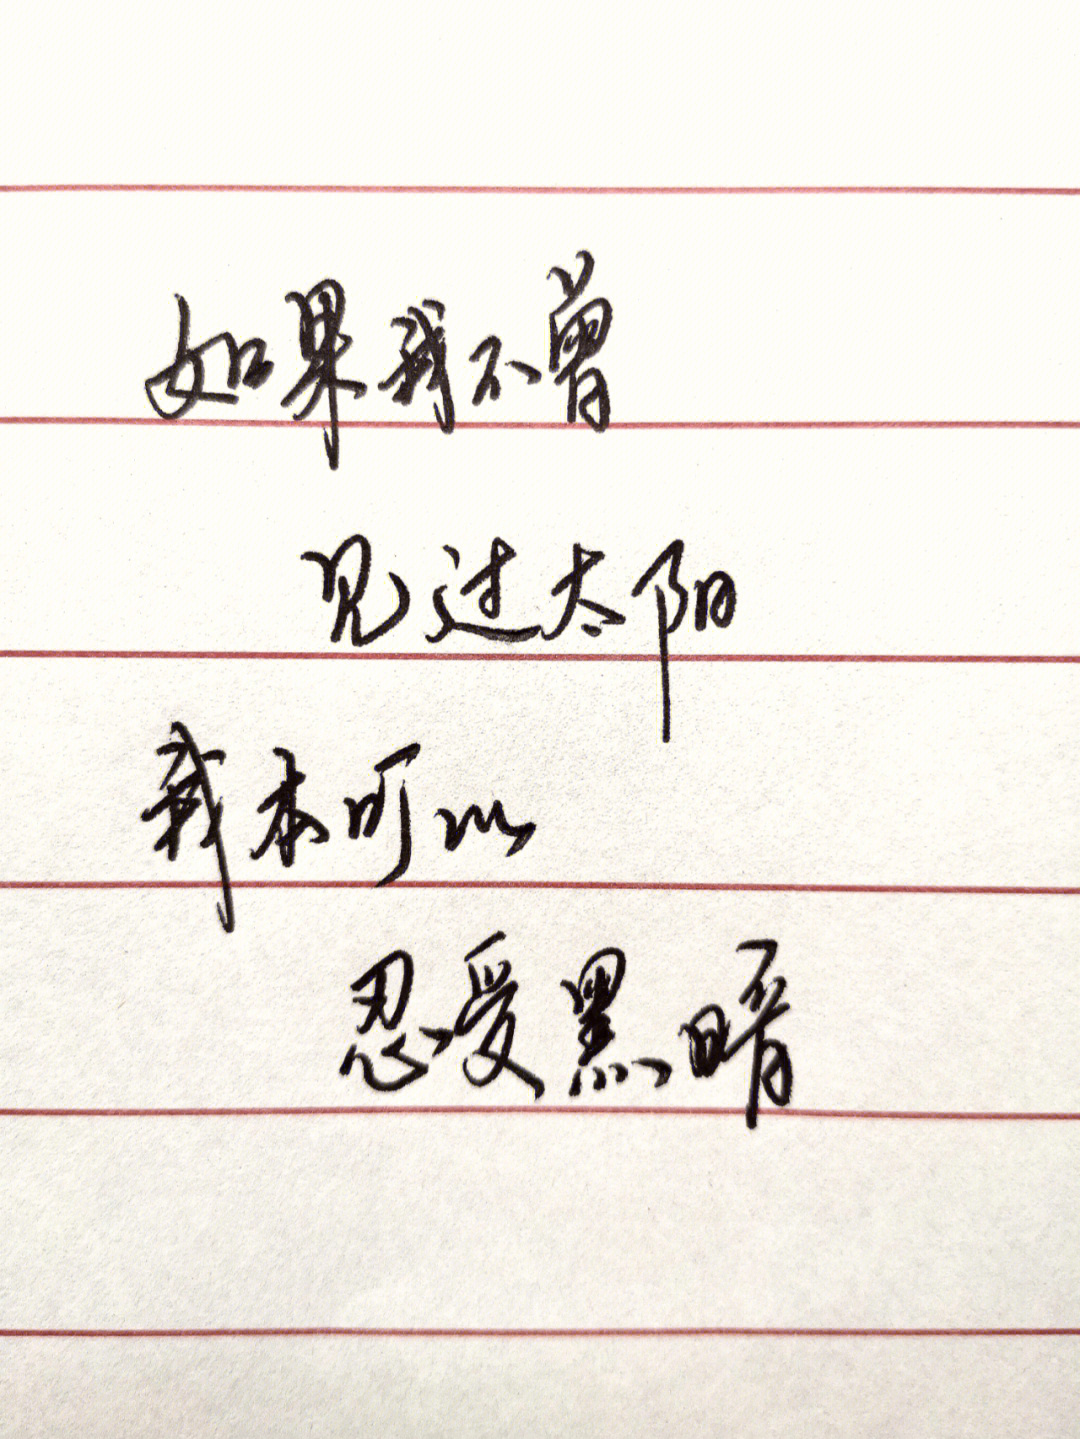 如果我不曾
见过太阳
我本可以
忍受黑暗